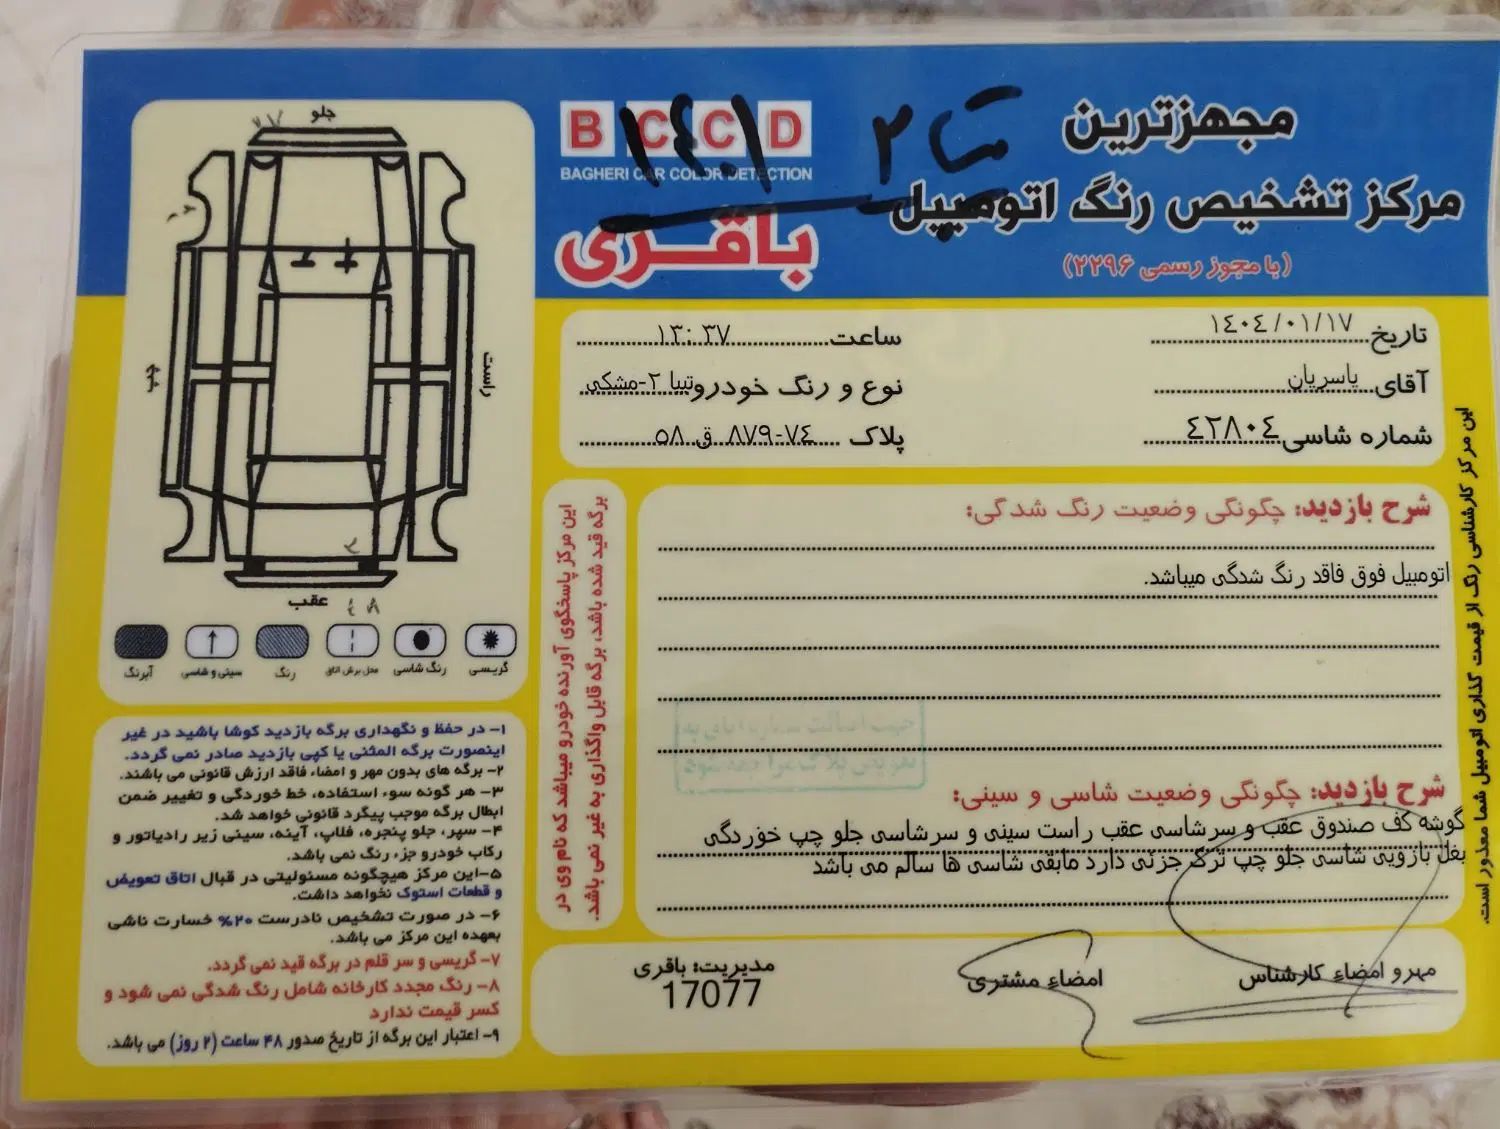 مجهزترین
مرکز تشخیص رنگ اتومبیل
(با مجوز رسمی ۲۲۹۶)
BCCD
BAGHERI CAR COLOR DETECTION
باقری
تیبا ۲
۱۴۰۱
تاریخ ۱۴۰۴/۰۱/۱۷
ساعت ۱۳:۳۷
آقای یاسریان
نوع و رنگ خودرو تیبا ۲-مشکی
شماره شاسی ۴۲۸۰۴
پلاک ۷۴-۸۷۹ ق ۵۸
شرح بازدید: چگونگی وضعیت رنگ شدگی:
اتومبیل فوق فاقد رنگ شدگی میباشد.
شرح بازدید: چگونگی وضعیت شاسی و سینی:
گوشه کف صندوق عقب و سرشاسی عقب راست سینی و سرشاسی جلو چپ خوردگی
بغل بازویی شاسی جلو چپ ترک جزئی دارد مابقی شاسی ها سالم می باشد
مهر و امضاء کارشناس
امضاء مشتری
مدیریت: باقری
17077
این مرکز کارشناسی رنگ از قیمت گذاری اتومبیل شما معذور است.
این مرکز پاسخگوی آورنده خودرو میباشد که نام وی در
برگه قید شده باشد، برگه قابل واگذاری به غیر نمی باشد.
جلو
راست
چپ
عقب
گریسی
رنگ شاسی
محل برش اتاق
رنگ
سینی و شاسی
آبرنگ
۱- در حفظ و نگهداری برگه بازدید کوشا باشید در غیر
اینصورت برگه المثنی یا کپی بازدید صادر نمی گردد.
۲- برگه های بدون مهر و امضاء فاقد ارزش قانونی می باشند.
۳- هر گونه سوء استفاده، خط خوردگی و تغییر ضمن
ابطال برگه موجب پیگرد قانونی خواهد شد.
۴- سپر، جلو پنجره، فلاپ، آینه، سینی زیر رادیاتور و
رکاب خودرو جزء رنگ نمی باشد.
۵- این مرکز هیچگونه مسئولیتی در قبال اتاق تعویض
و قطعات استوک نخواهد داشت.
۶- در صورت تشخیص نادرست ۲۰% خسارت ناشی
بعهده این مرکز می باشد.
۷- گریسی و سر قلم در برگه قید نمی گردد.
۸- رنگ مجدد کارخانه شامل رنگ شدگی نمی شود و
کسر قیمت ندارد
۹- اعتبار این برگه از تاریخ صدور ۴۸ ساعت (۲ روز) می باشد.